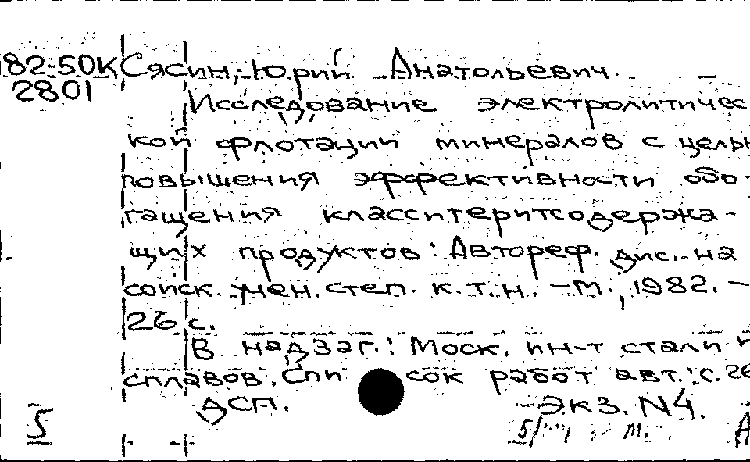 182-50К Сясин, Юрий Анатольевич.
2801
Исследование электролитичес
кой флотации минералов с целью
повышения эффективности обо-
гащения касситеритсодержа-
щих продуктов: Автореф. дис. на
соиск. учен. степ. к.т.н. –М., 1982. –
26 с.
В надзаг.: Моск. ин-т стали и
сплавов. Список работ авт.: с. 26
ДСП. Экз. N4.
5 5/ М. А